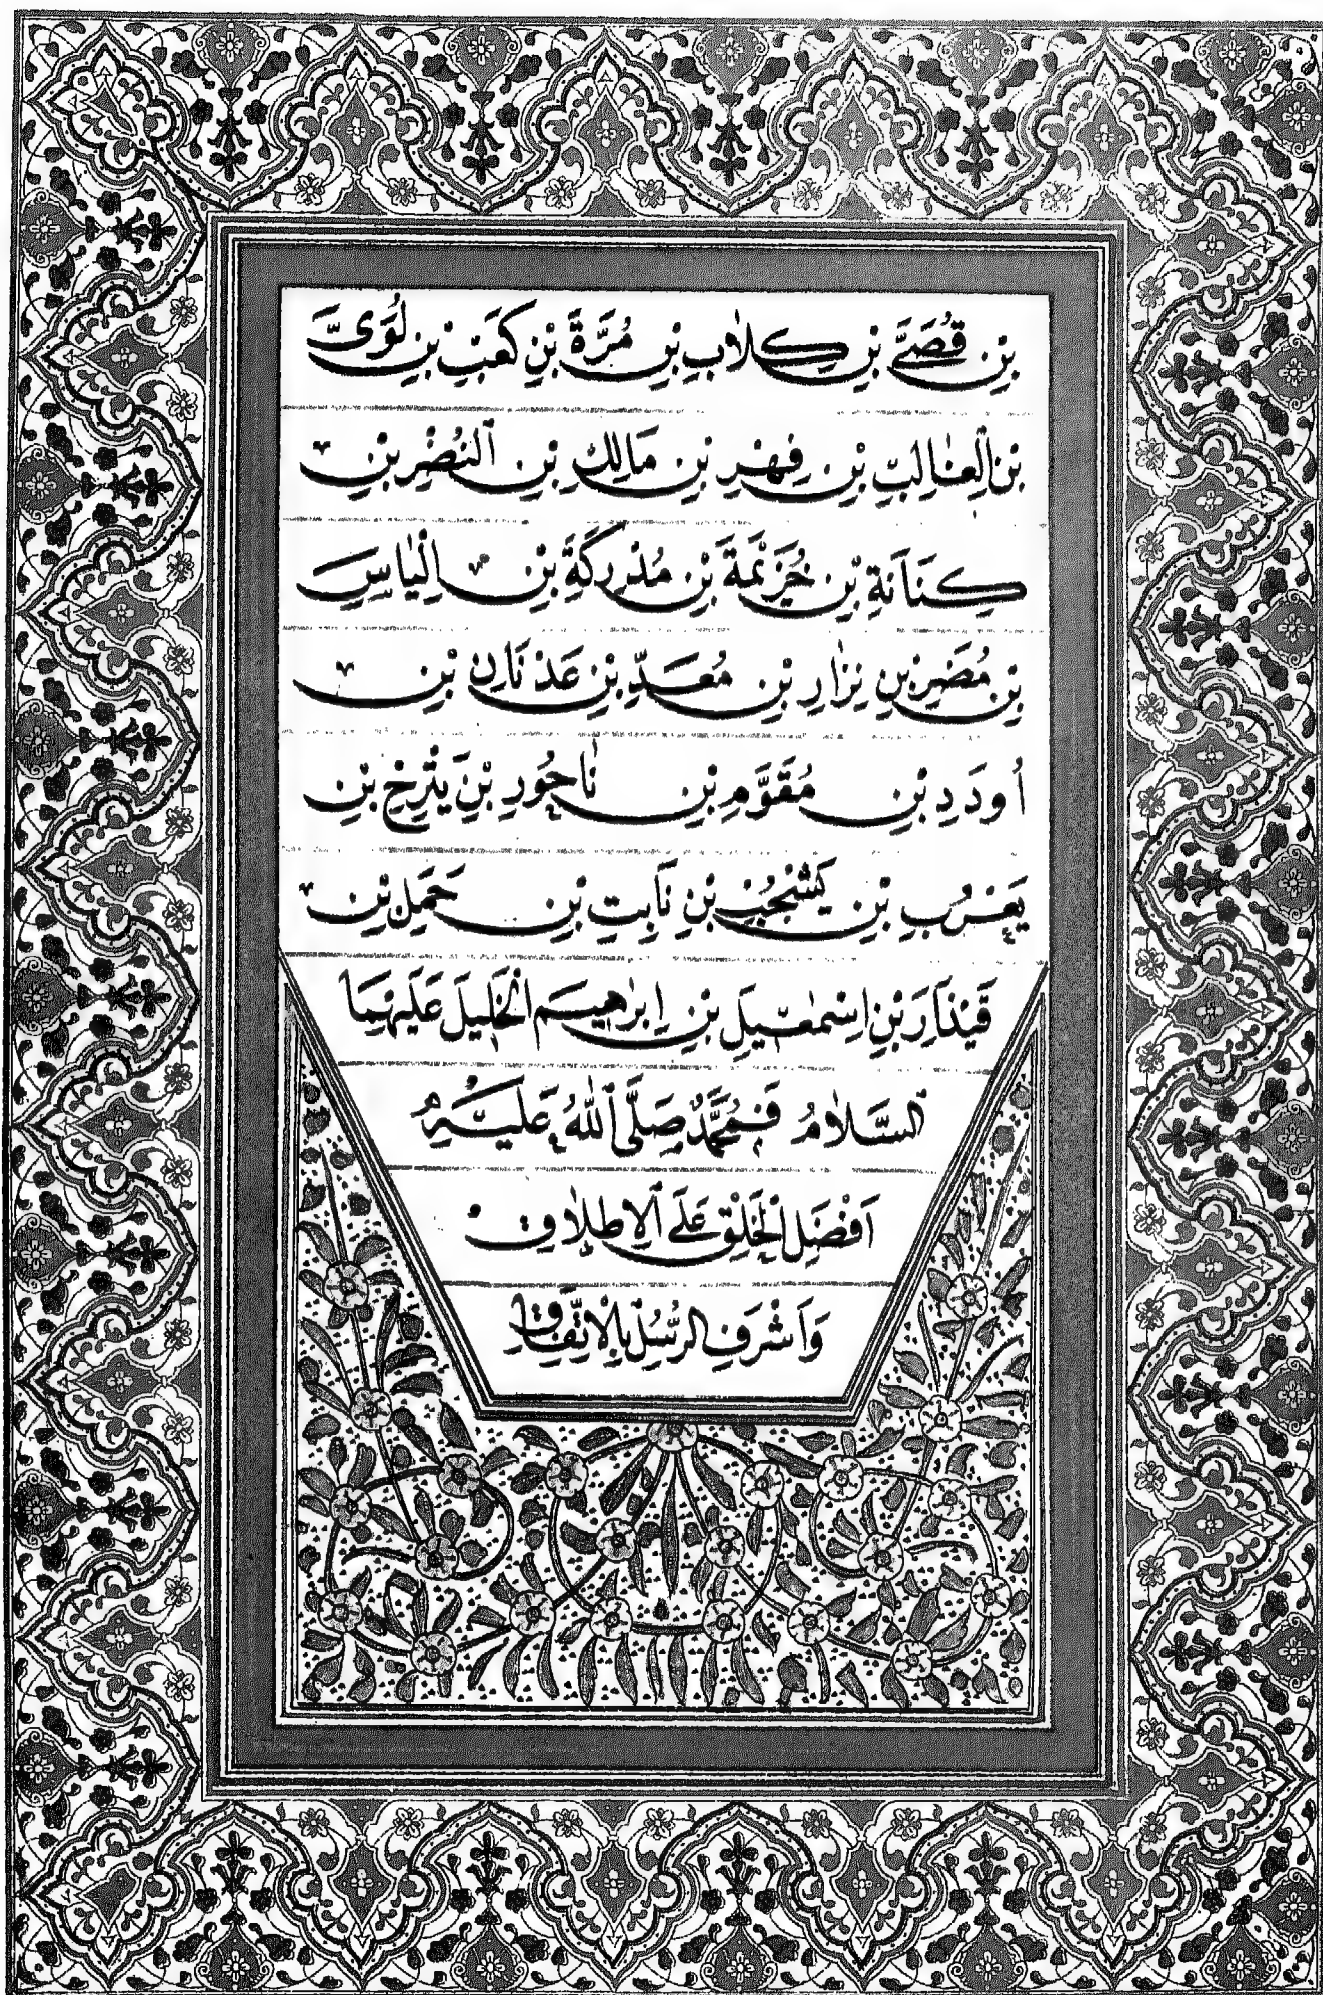 بْنِ قُصَىِّ بْنِ كِلَابِ بْنِ مُرَّةَ بْنِ كَعَبِ بْنِ لُوَىِّ
بْنِ الْغَالِبِ بْنِ فِهْرِ بْنِ مَالِكِ بْنِ النُّضْرِ بْنِ
كِنَانَةِ بْنِ خُزَيْمَةَ بْنِ مُدْرِكَةِ بْنِ اِلْيَاسِ
بْنِ مُضَرِ بْنِ نِزَارِ بْنِ مُعَدِّ بْنِ عَدْنَانِ بْنِ
اُودَدِ بْنِ مُقَوَّمِ بْنِ نَاحُورِ بْنِ يَتْرِخِ بْنِ
يَعْرُبِ بْنِ يَشْجُبِ بْنِ نَابِتِ بْنِ حَمَلِ بْنِ
قَيْذَارَ بْنِ اِسْمٰعِيلِ بْنِ اِبْرٰهِيمَ الْخَلِيلَ عَلَيْهِمَا
السَّلَامُ فَمُحَمَّدٌ صَلَّى اللّٰهُ عَلَيْهِ
اَفْضَلُ الْخَلْقِ عَلَى الْاِطْلَاقِ
وَاَشْرَفِ الرُّسُلِ بِالْاِتِّفَاقِ